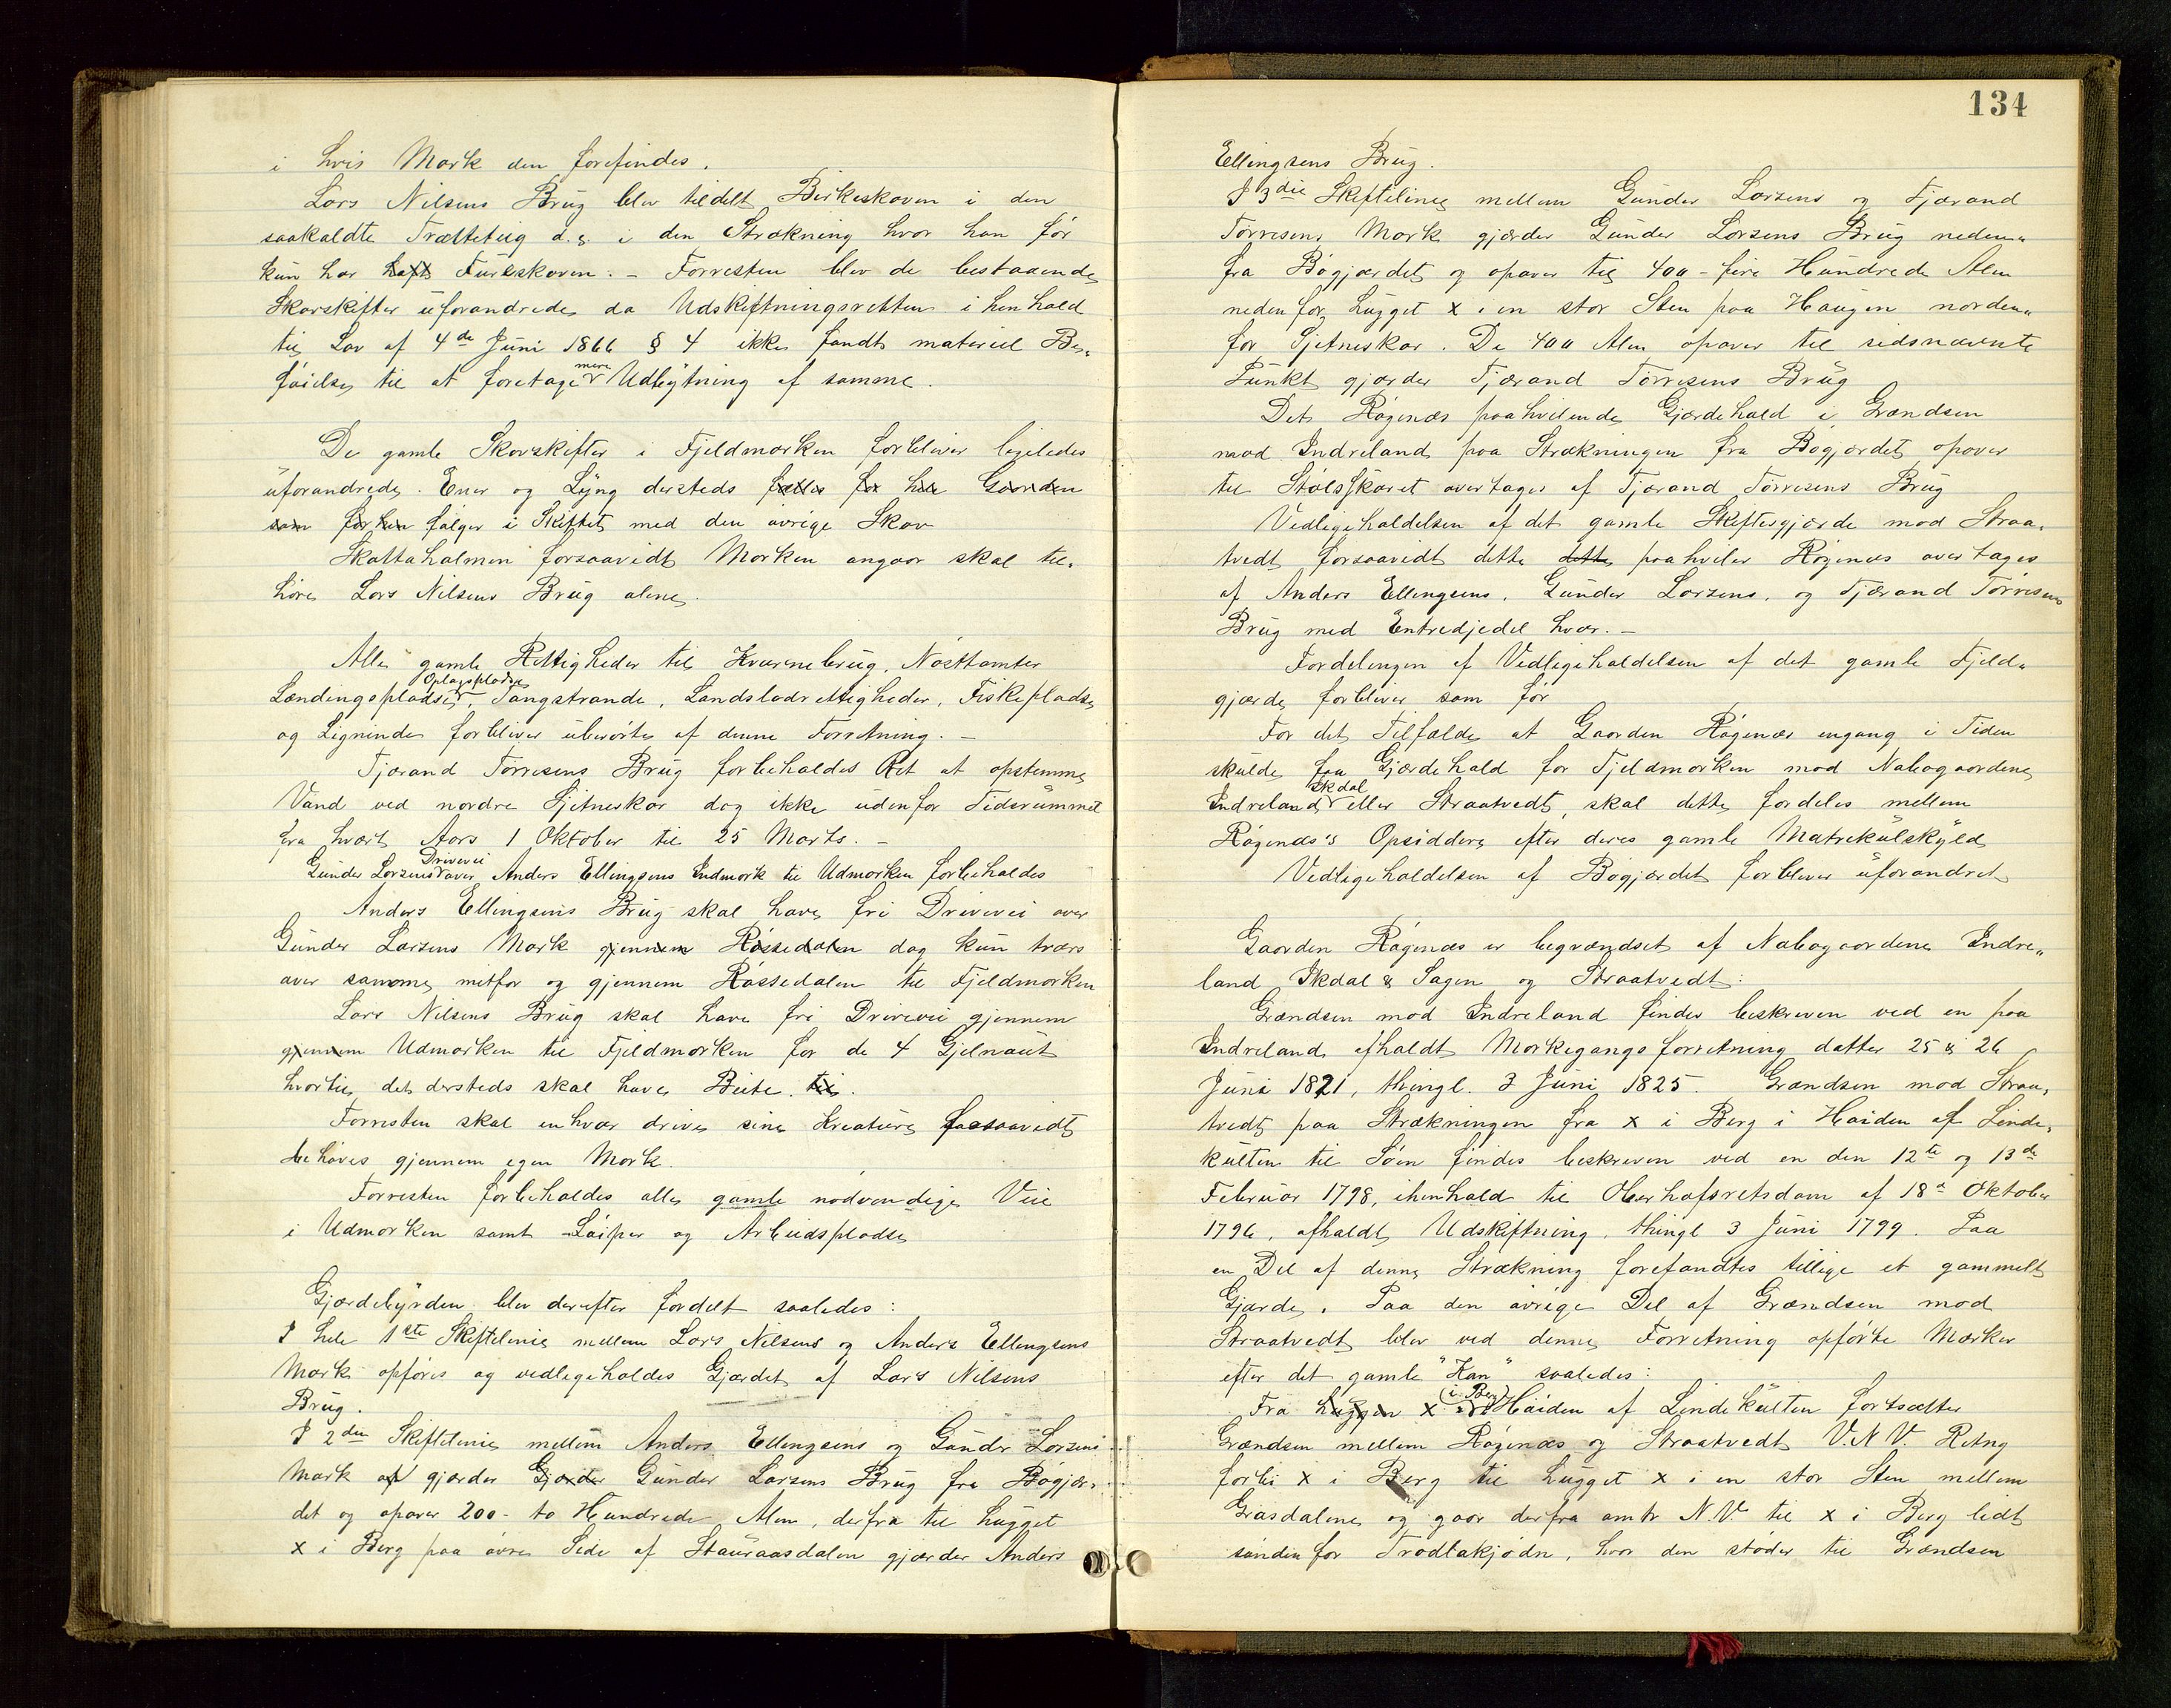 i hvis Mark den forefindes.
Lars Nilsens Brug blev tildelt Birkeskoven i den
saakaldte Trætteteig d.s. i den Strækning hvor han før
kun har havt Fureskoven. – Forresten blev de bestaaende
Skovskifter uforandrede da Udskiftningsretten i henhold
til Lov af 4de Juni 1866 § 4 ikke fandt materiel Be-
føielse til at foretage mere Udbytning af samme.
De gamle Skovskifter i Fjeldmarken forbliver ligeledes
uforandrede. Ener og Lyng dersteds fælles for hele Gaarden
som før men følger i Skiftet med den øvrige Skov
Skattaholmen forsaavidt Marken angaar skal til-
høre Lars Nilsens Brug alene.
Alle gamle Rettigheder til Kværnebrug, Nøsttomter
Oplagspladse
Landingspladse, Tangstrande, Landslodrettigheder, Fiskepladse
og Lignende forbliver uberørte af denne Forretning. –
Tjærand Tørresens Brug forbeholdes Ret at opstemme
Vand ved nordre Sjetneskar dog ikke udenfor Tidsrummet
fra hvert Aars 1 Oktober til 25 Marts. –
Drivevei
Gunder Larsens over Anders Ellingsens Indmark til Udmarken forbeholdes
Anders Ellingsens Brug skal have fri Drivevei over
Gunder Larsens Mark gjennem Røssedalen dog kun tværs
over samme mitfor og gjennem Røssedalen til Fjeldmarken
Lars Nilsens Brug skal have fri Drivevei gjennem
gjennem Udmarken til Fjeldmarken for de 4 Gjelnaut
hvortil det dersteds skal have Beite. til.
Forresten skal enhver drive sine Kreature forsaavidt
behøves gjennem egen Mark.
Forresten forbeholdes alle gamle nødvendige Veie
i Udmarken samt Løiper og Arbeidspladse
Gjærdebyrden blev derefter fordelt saaledes:
I hele 1ste Skiftelinie mellem Lars Nilsens og Anders Ellingsens
Mark opføres og vedligeholdes Gjærdet af Lars Nilsens
Brug.
I 2den Skiftelinie mellem Anders Ellingsens og Gunder Larsens
Mark af gjærder Gjærder Gunder Larsens Brug fra Bøgjær-
det og opover 200 - to Hundrede Alen, derfra til hugget
x i Berg paa øvre Side af Stauraasdalen gjærder Anders
134
Ellingsens Brug.
I 3die Skiftelinie mellem Gunder Larsens og Tjærand
Tørresens Mark gjærder Gunder Larsens Brug neden-
fra Bøgjærdet og opover til 400 - fire Hundrede Alen
nedenfor hugget x i en stor Sten paa Haugen norden-
for Sjetneskar. De 400 Alen opover til sidsnævnte
Punkt gjærder Tjærand Tørresens Brug
Det Røgenæs paahvilende Gjærdehold i Grændsen
mod Indreland paa Strækningen fra Bøgjærdet opover
til Stølsskaret overtages af Tjærand Tørresens Brug
Vedligeholdelsen af det gamle Skiftesgjærde mod Straa-
tvedt forsaavidt dette dette paahviler Røgenæs overtages
af Anders Ellingsens, Gunder Larsens, og Tjærand Tørresens
Brug med Entredjedel hver. –
Fordelingen af Vedligeholdelsen af det gamle Fjeld-
gjærde forbliver som før
For det Tilfælde at Gaarden Røgenæs engang i Tiden
skulde faa Gjærdehold for Fjeldmarken mod Nabogaardene
Ikdal
Indreland eller Straatvedt, skal dette fordeles mellem
Røgenæs's Opsiddere efter deres gamle Matrikulskyld
Vedligeholdelsen af Bøgjærdet forbliver uforandret
Gaarden Røgenæs er begrændset af Nabogaardene Indre-
land Ikdal & Sagen og Straatvedt:
Grændsen mod Indreland findes beskreven ved en paa
Indreland afholdt Markegangsforretning datter 25 & 26
Juni 1821, thingl. 3 Juni 1825. Grændsen mod Straa-
tvedt paa Strækningen fra x i Berg i Høiden af Linde-
kulten til Søen findes beskreven ved en den 12te og 13de
Februar 1798, ihenhold til Oberhofsretsdom af 18de Oktober
1796, afholdt Udskiftning, thingl 3 Juni 1799. Paa
en Del af denne Strækning forefandtes tillige et gammelt
Gjærde. Paa den øvrige Del af Grændsen mod
Straatvedt blev ved denne Forretning opførte Mærker
efter det gamle "Han" saaledes:
(i Berg)
Fra huggen x i Høiden af Lindekulten fortsætter
Grændsen mellem Røgenæs og Straatvedt V.N.V. Retng
forbi x i Berg til hugget x i en stor Sten mellem
Grasdalene og gaar derfra omtr N.V til x i Berg lidt
søndenfor Trodlakjødn, hvor den støder til Grændsen